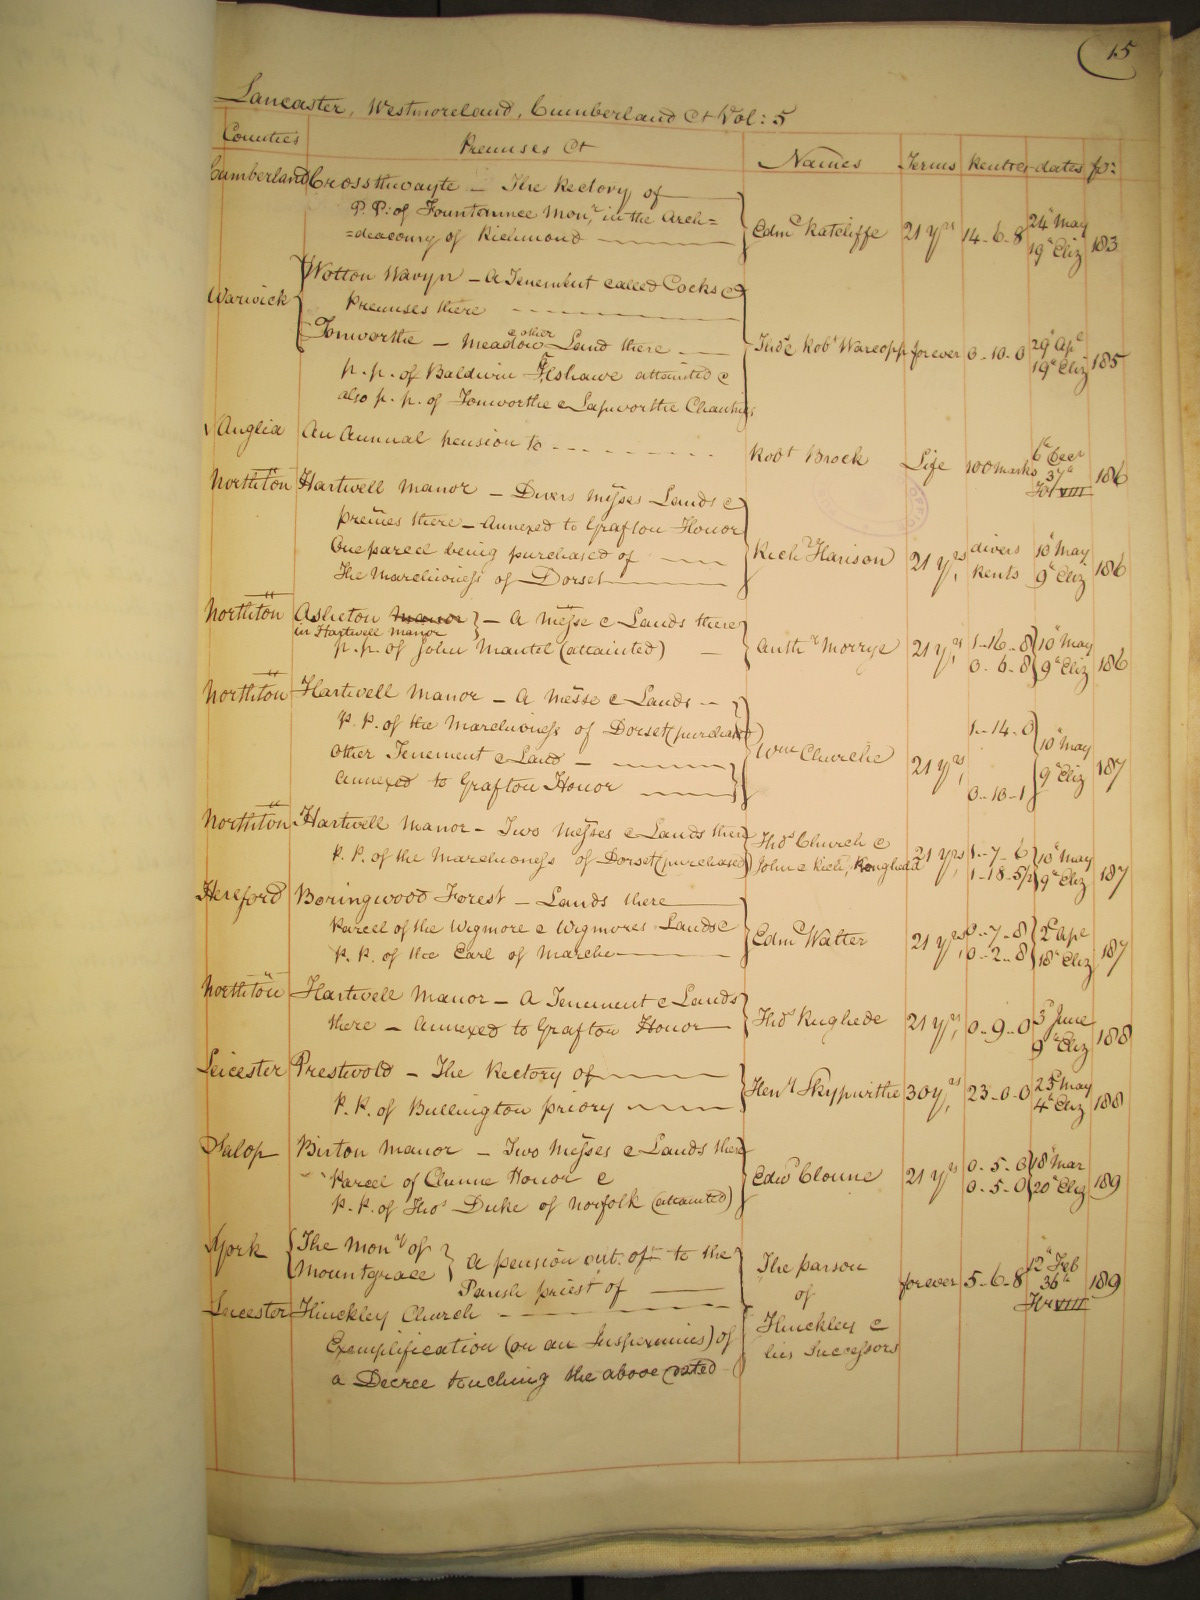 15
Lancaster, Westmoreland, Cumberland &c Vol: 5
Counties Premises &c Names Terms Rents &c dates fo:
Cumberland Crossthwayte – The Rectory of
P. P: of Fountannce Mon.y in the Arch=
=deaconry of Richmond
Edm.d Ratcliffe 21 yrs 14-6-8 24th May 19th Eliz 183
Warwick Wotton Wavyn – A Tenement called Cocks &
Premises there
Tonworthe – Meadow & other Land there
p. p. of Baldwin Felshawe attainted &
also p. p. of Tonworthe & Lapworthe Chantrys
Thos & Robt Warcopp forever 0-10-0 29th Apl 19th Eliz 185
Anglia An Annual pension to
Robt Brock Life 100 Marks 6th Decr 37th Hy VIII 186
Northton Hartwell Manor – Divers messes Lands &
premes there – Annexed to Grafton Honor
One parcel being purchased of
The Marchioness of Dorset
Rich.d Harison 21 yrs, divers Rents 10th May 9th Eliz 186
Northton Asheton Manor – A Messe & Lands there
in Hartwell Manor
p. p. of John Mantel (attainted)
Anth.y Morrye 21 yrs, 1-16-8 0-6-8 10th May 9th Eliz 186
Northton Hartwell Manor – A Messe & Lands
P. P. of the Marchioness of Dorset (purchased)
other Tenement & Land –
Annexed to Grafton Honor
Wm Churche 21 yrs, 1-14-0 0-10-1 10th May 9th Eliz 187
Northton Hartwell Manor – Two Messes & Lands there
P. P. of the Marchioness of Dorset (purchased)
Thos Church &
John & Rich.d 21 yrs, 1-7-6 1-18-5½ 10th May 9th Eliz 187
Hereford Boringwood Forest – Lands there
Parcel of the Wigmore & Wigmores Lands &
P. P. of the Earl of Marche
Edm.d Walter 21 yrs, 0-7-8 0-2-8 2d Apl 18th Eliz 187
Northton Hartwell Manor – A Tenement & Lands
there – Annexed to Grafton Honor
Thos Rughede 21 yrs, 0-9-0 3d June 9th Eliz 188
Leicester Prestwold – The Rectory of
P. P. of Bullington priory
Hen.y Skypwithe 30 yrs, 23-0-0 25th May 4th Eliz 188
Salop Birton Manor – Two Messes & Lands there
Parcel of Clunne Honor &
P. P. of Thos Duke of Norfolk (attainted)
Edwd Clonne 21 yrs 0-5-0 0-5-0 18th Mar 20th Eliz 189
York The Mon.y of Mountgrace A pension out of it to the
Parish priest of
Leicester Hinckley Church
Exemplification (or an Inspeximus) of
a Decree touching the above (dated
The parson
of
Hinckley &
his Successors
forever 5-6-8 12th Feb 36th Hy VIII 189